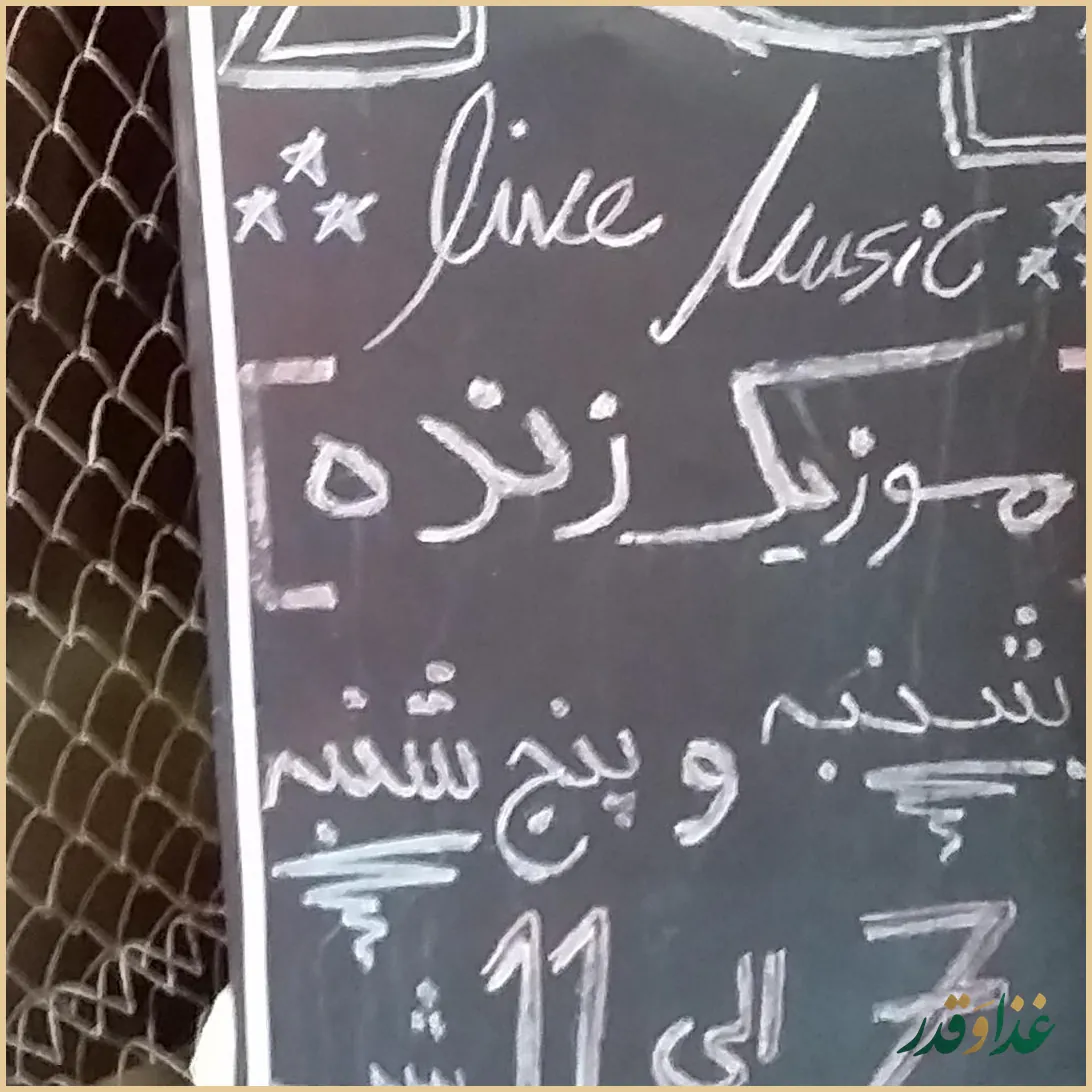 live Music
موزیک زنده
شنبه و پنج شنبه
7 الی 11
غذا و قدر